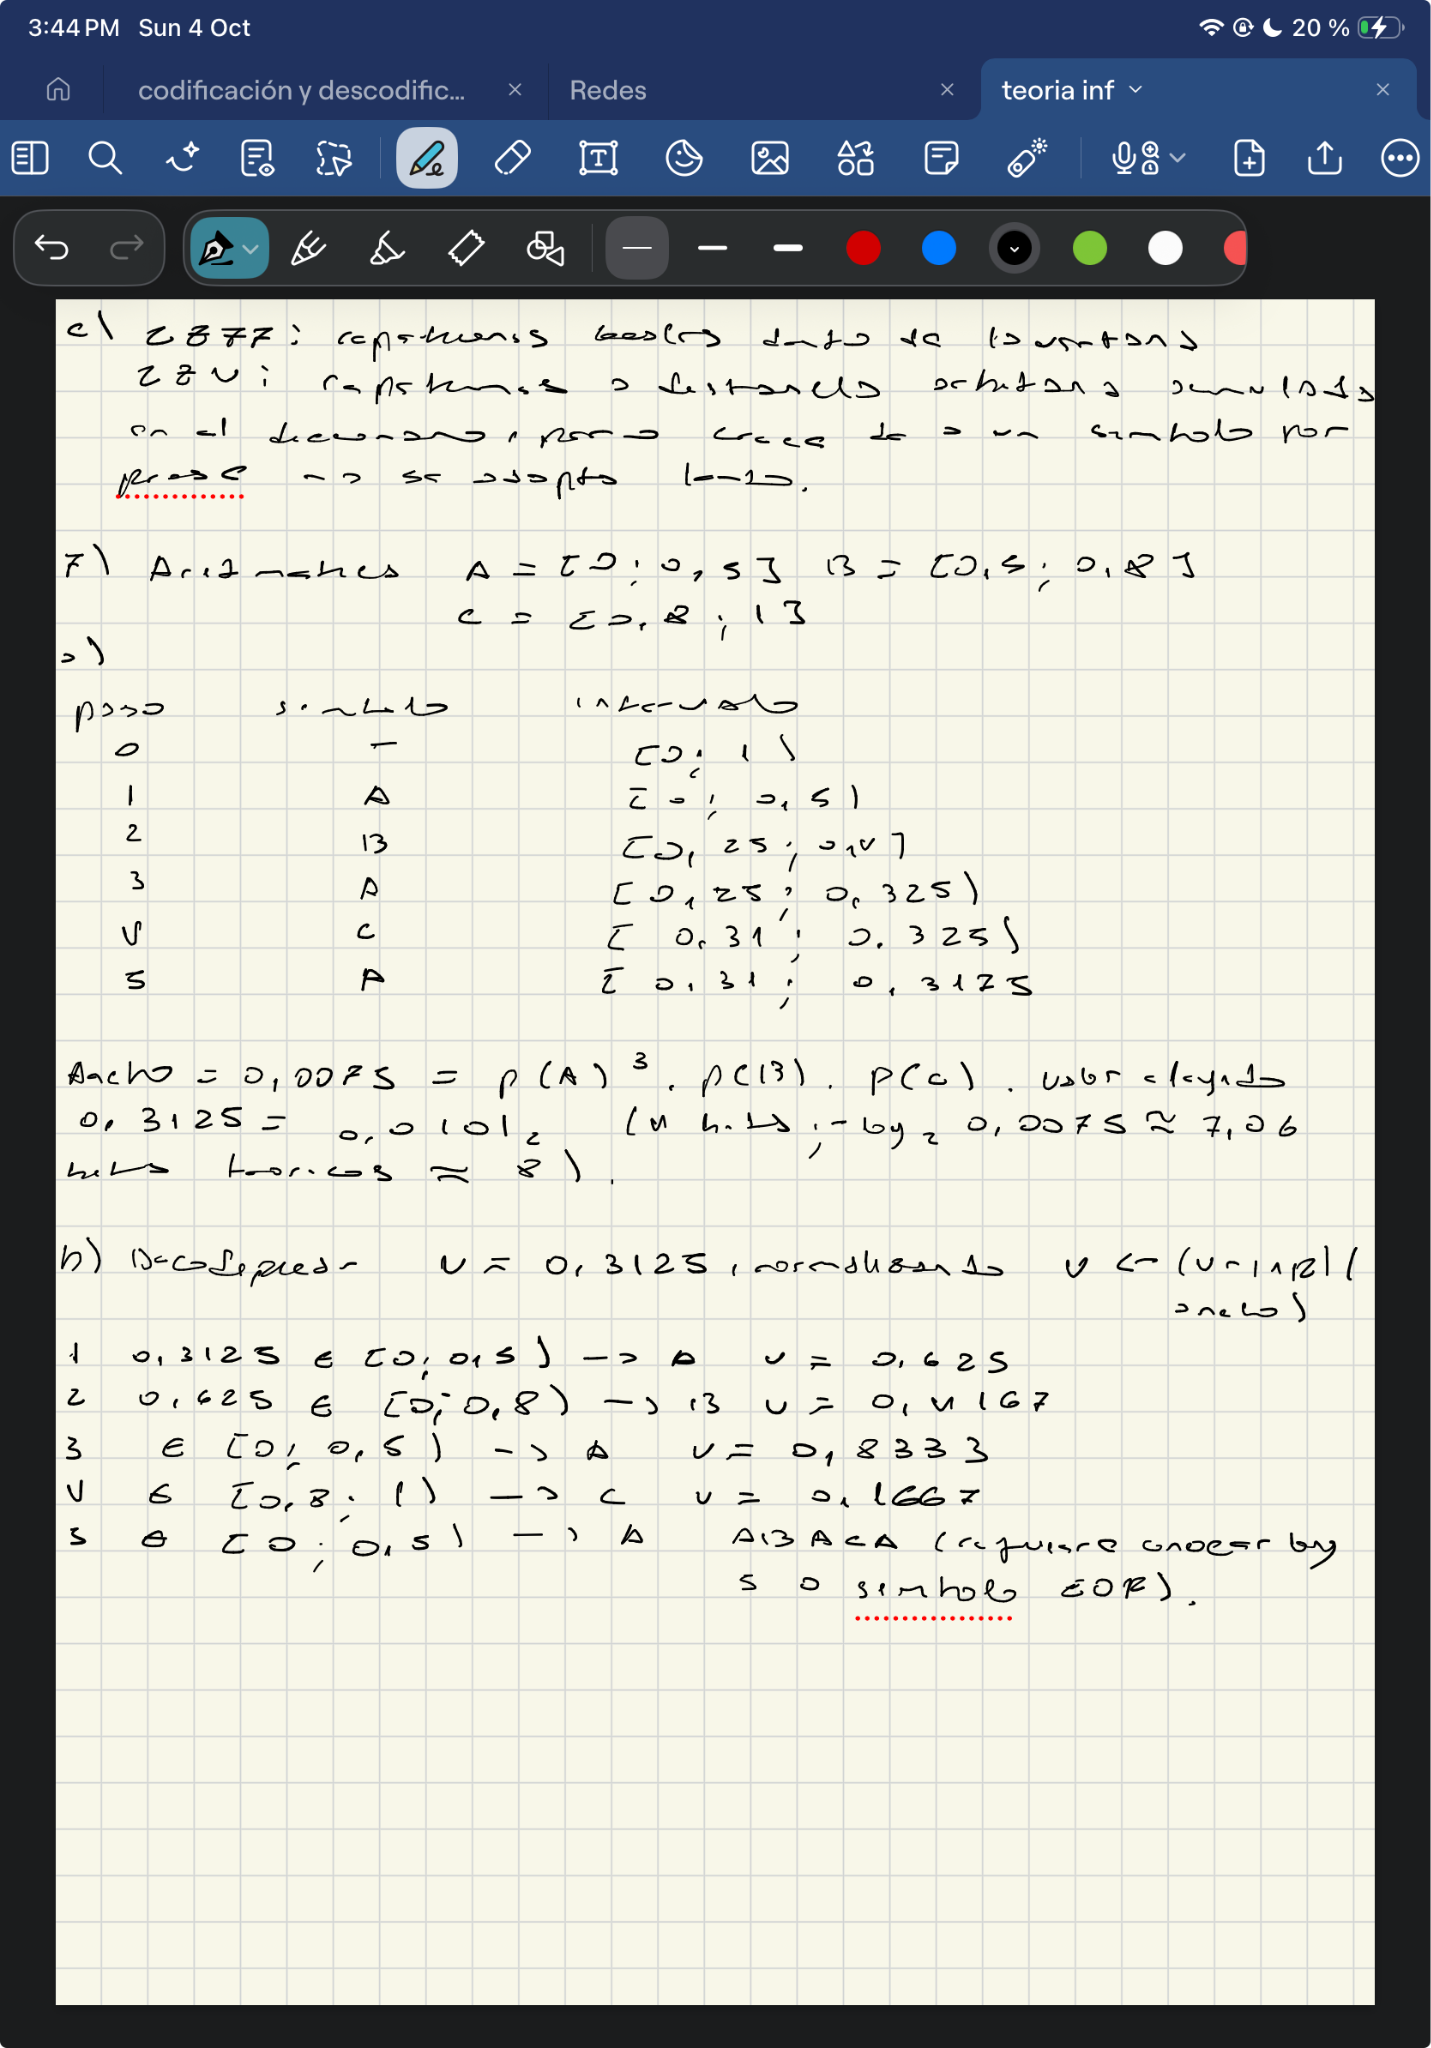 3:44 PM Sun 4 Oct
20 %
codificación y descodific...
Redes
teoria inf
c) LZ77: repeticiones dentro de la ventana
LZ4: repeticiones a distancia arbitraria
en el diccionario, pero crece de a un simbolo por
frase no se adapta lento.
7) Aritmetica A = [0; 0,5] B = [0,5; 0,8]
C = [0,8; 1]
a)
paso simbolo intervalo
0 — [0; 1)
1 A [0; 0,5)
2 B [0,25; 0,4]
3 A [0,25; 0,325)
4 C [0,31; 0,325)
5 A [0,31; 0,3175
Ancho = 0,0075 = p(A)³. p(B). p(C). valor elegido
0,3125 = 0,0101₂ (4 bits; -log₂ 0,0075 ≈ 7,06
bits teoricos ≈ 8).
b) Decodificar v = 0,3125, normalizando v <- (v-inf)/
ancho)
1 0,3125 ∈ [0; 0,5) -> A v = 0,625
2 0,625 ∈ [0; 0,8) -> B v = 0,4167
3 ∈ [0; 0,5) -> A v = 0,8333
4 ∈ [0,8; 1) -> C v = 0,1667
5 ∈ [0; 0,5) -> A ABACA (requiere conocer long
5 o simbolo EOF).